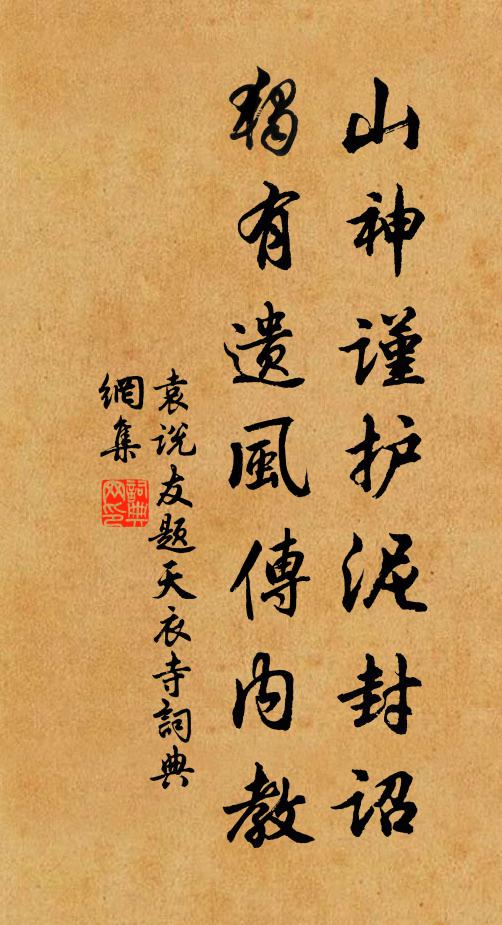 山神謹护泥封詔
獨有遺風傳内教
袁説友題天衣寺詞典
網集
詞典
网印